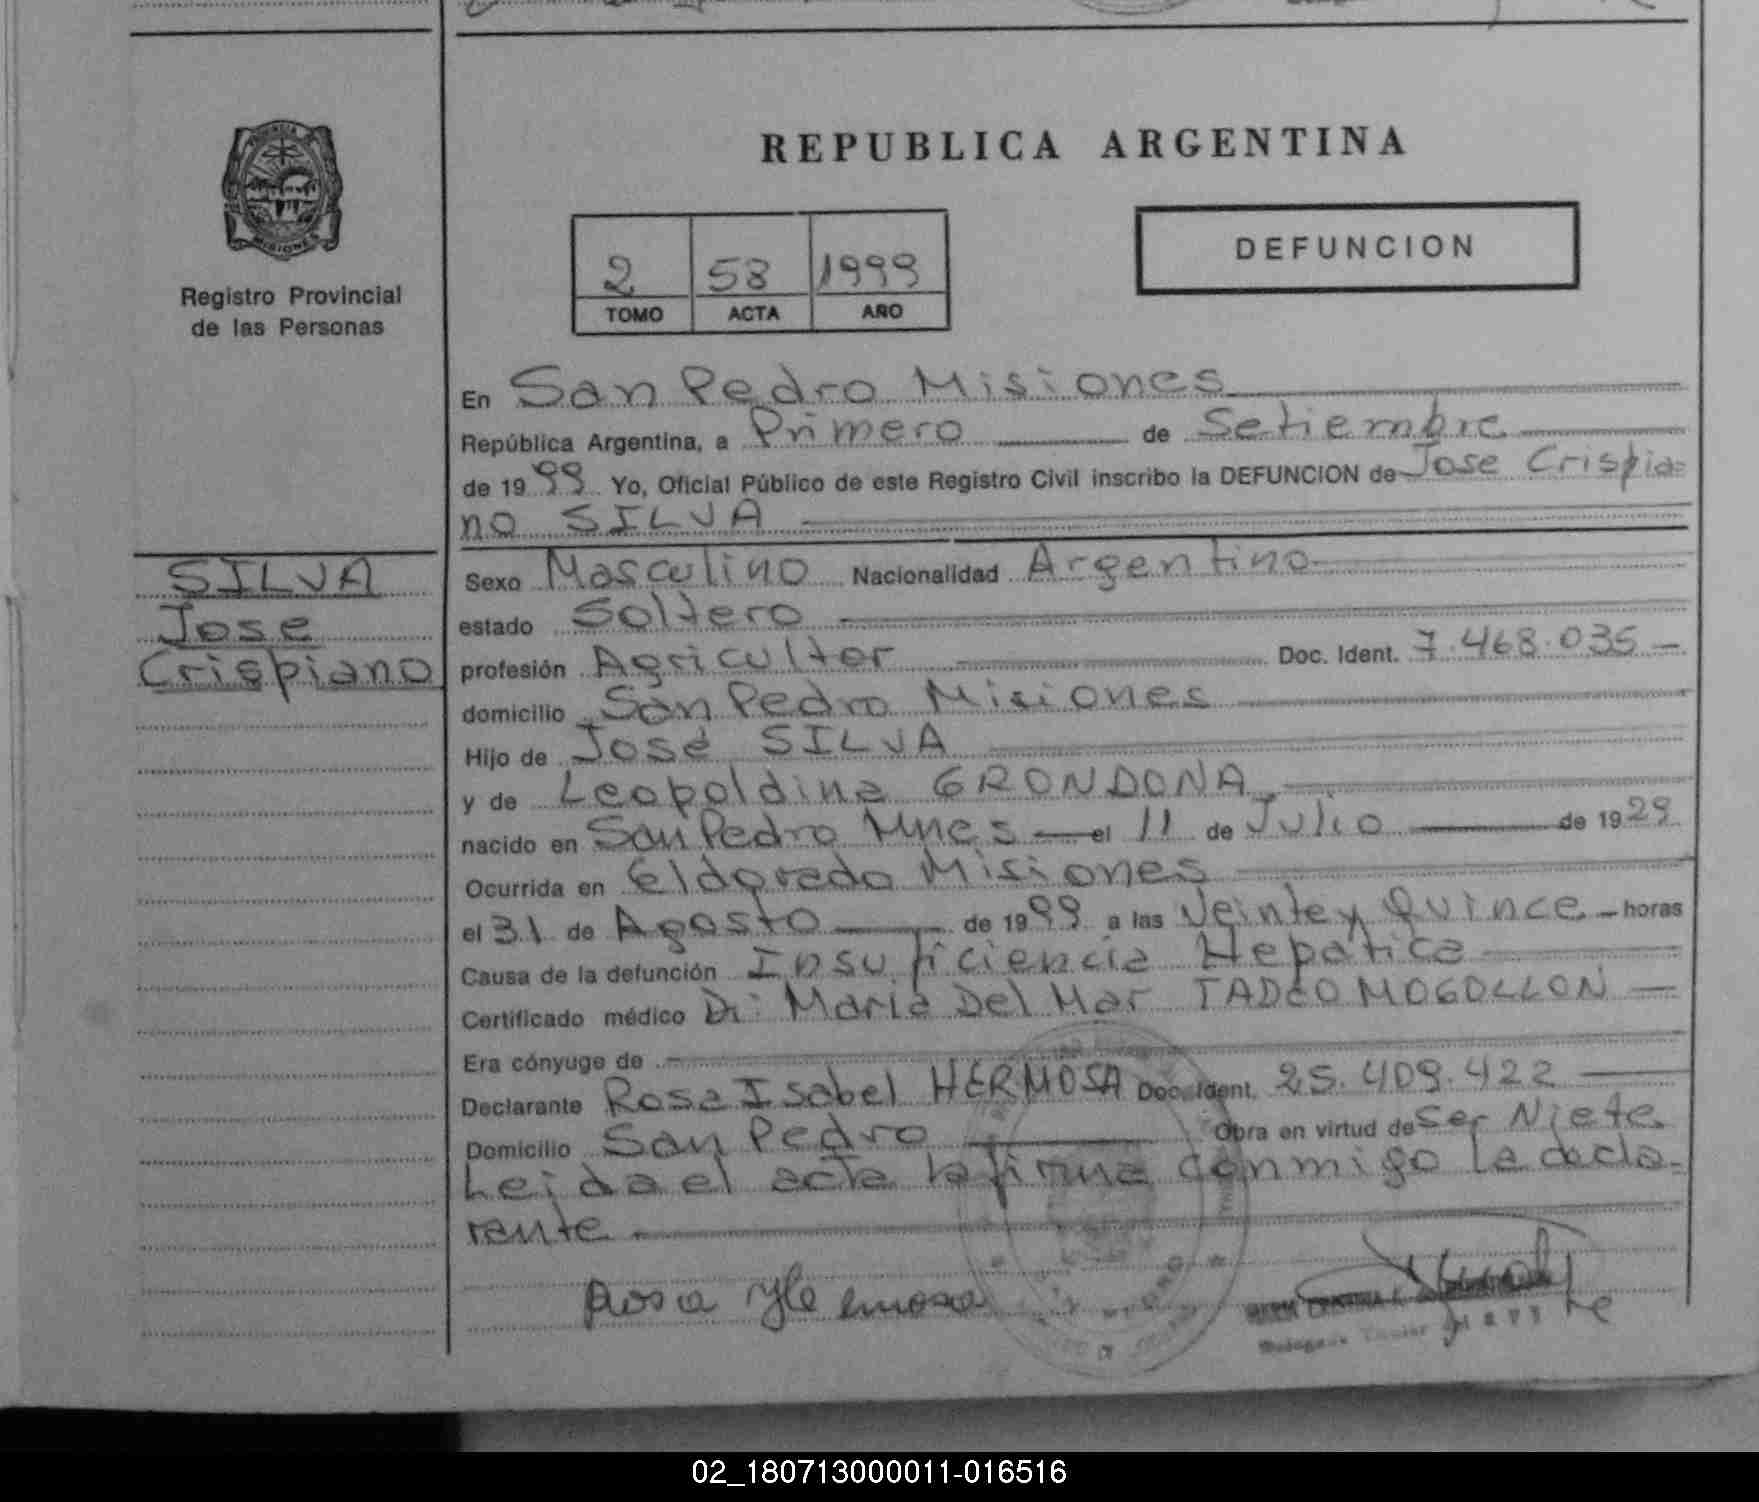 REPUBLICA ARGENTINA
DEFUNCION
2 58 1999
TOMO ACTA AÑO
PROVINCIA DE
MISIONES
Registro Provincial
de las Personas
SILVA
Jose
Crispiano
En San Pedro Misiones
República Argentina, a Primero de Setiembre
de 1999 Yo, Oficial Público de este Registro Civil inscribo la DEFUNCION de Jose Crispia=
no SILVA
Sexo Masculino Nacionalidad Argentino
estado Soltero
profesión Agricultor Doc. Ident. 7.468.035
domicilio San Pedro Misiones
Hijo de José SILVA
y de Leopoldina GRONDONA
nacido en San Pedro Mnes el 11 de Julio de 1929
Ocurrida en Eldorado Misiones
el 31 de Agosto de 1999 a las Veinte y Quince horas
Causa de la defunción Insuficiencia Hepatica
Certificado médico Dr: Maria Del Mar TADEO MOGOLLON
Era cónyuge de
Declarante Rosa Isabel HERMOSA Doc. Ident. 25.409.422
Domicilio San Pedro Obra en virtud de ser Nieta
Leida el acta la firma conmigo la decla-
rante
02_180713000011-016516